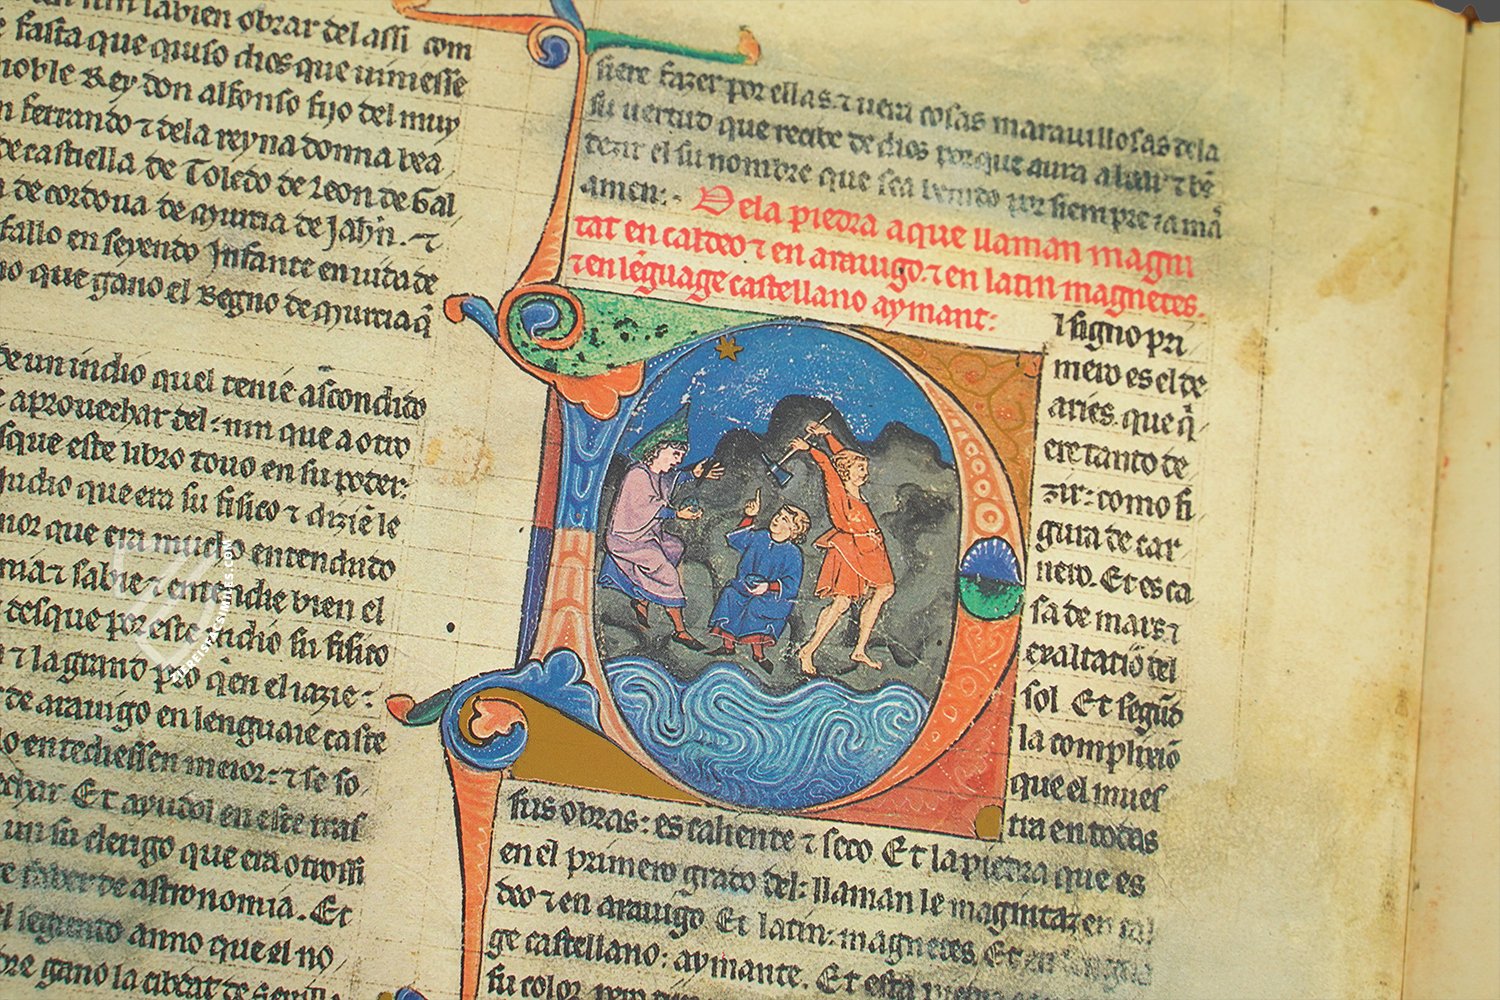 labien obrar del assi com
fasta que quiso dios que uiniesse
noble Rey don alfonso fijo del muy
ferrando ⁊ dela reyna donna bea
de castiella de Toledo de Leon de Gal
de cordoua de Murcia de Jahñ. ⁊
fallo en seyendo Jnfante en uida de
que gano el Regno de Murcia q̃
de un iudio quel tenie ascondido
aprouechar del: nin que a otro
que este libro touo en su poder:
iudio que era su fisico ⁊ dizie le
que era mucho entendudo
⁊ sabie ⁊ entendie bien el
desque por este iudio su fisico
⁊ la grand pro q̃ en el iazie:
de arauigo en lenguaie caste
lo entediessen meior: ⁊ se so
Et ayudol en este tras
un su clerigo que era otrossi
saber de astronomia. Et
el segundo anno que el no
gano la cibdat de
siere fazer por ellas. ⁊ uera cosas marauillosas dela
su uertud que recibe de dios porque aura a loar ⁊ bẽ
dezir el su nombre que sea benito por siempre iamas
amen:- Dela piedra a que llaman magni
tat en caldeo ⁊ en arauigo. ⁊ en latin magnetes.
⁊ en lẽguage castellano aymant:
l signo pri
mero es el de
aries. que q̃
ere tanto de
zir: como fi
gura de car
nero. Et es ca
sa de mars ⁊
exaltatiõ del
sol Et segũd
la complixiõ
que el mues
tra en todas
sus obras: es caliente ⁊ seco Et la piedra que es
en el primero grado del: llaman le magnitaz en cal
deo ⁊ en arauigo Et latin: magnetes. Et en lengua
ge castellano: aymante. Et esta
su color